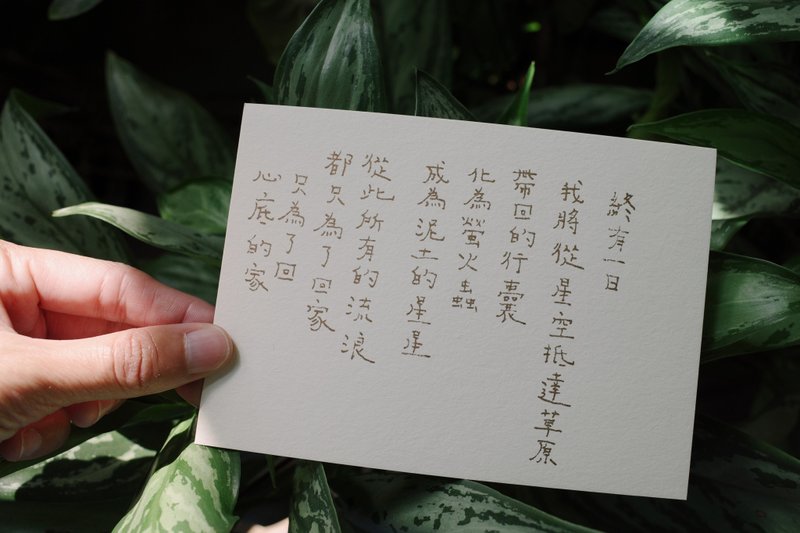 終有一日
我將從星空抵達草原
帶回的行囊
化為螢火蟲
成為泥土的星星
從此所有的流浪
都只為了回家
只為了回
心底的家